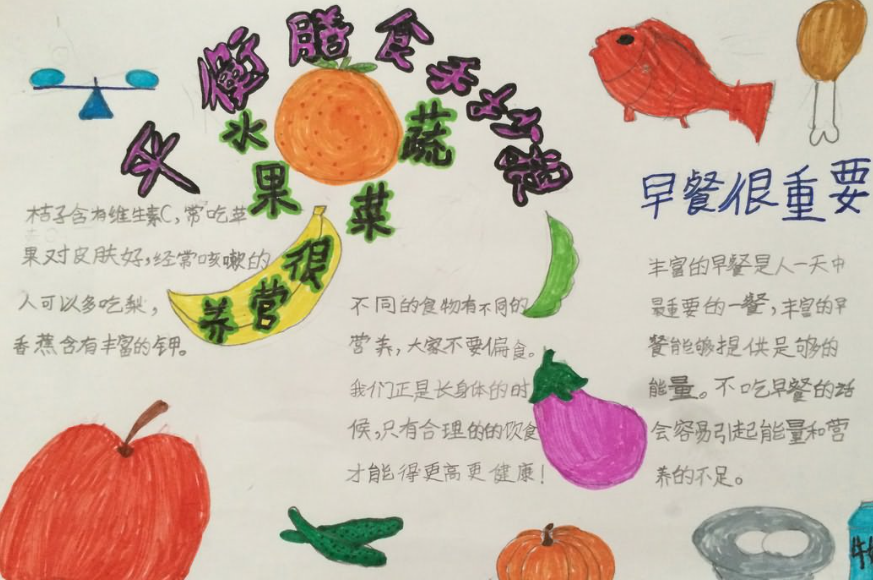 平衡膳食
水果
蔬菜
很营养
桔子含有维生素C，常吃苹
果对皮肤好，经常咳嗽的
人可以多吃梨，
香蕉含有丰富的钾。
不同的食物有不同的
营养，大家不要偏食。
我们正是长身体的时
候，只有合理的的饮食
才能得更高更健康！
早餐很重要
丰富的早餐是人一天中
最重要的一餐，丰富的早
餐能够提供足够的
能量。不吃早餐的话
会容易引起能量和营
养的不足。
牛